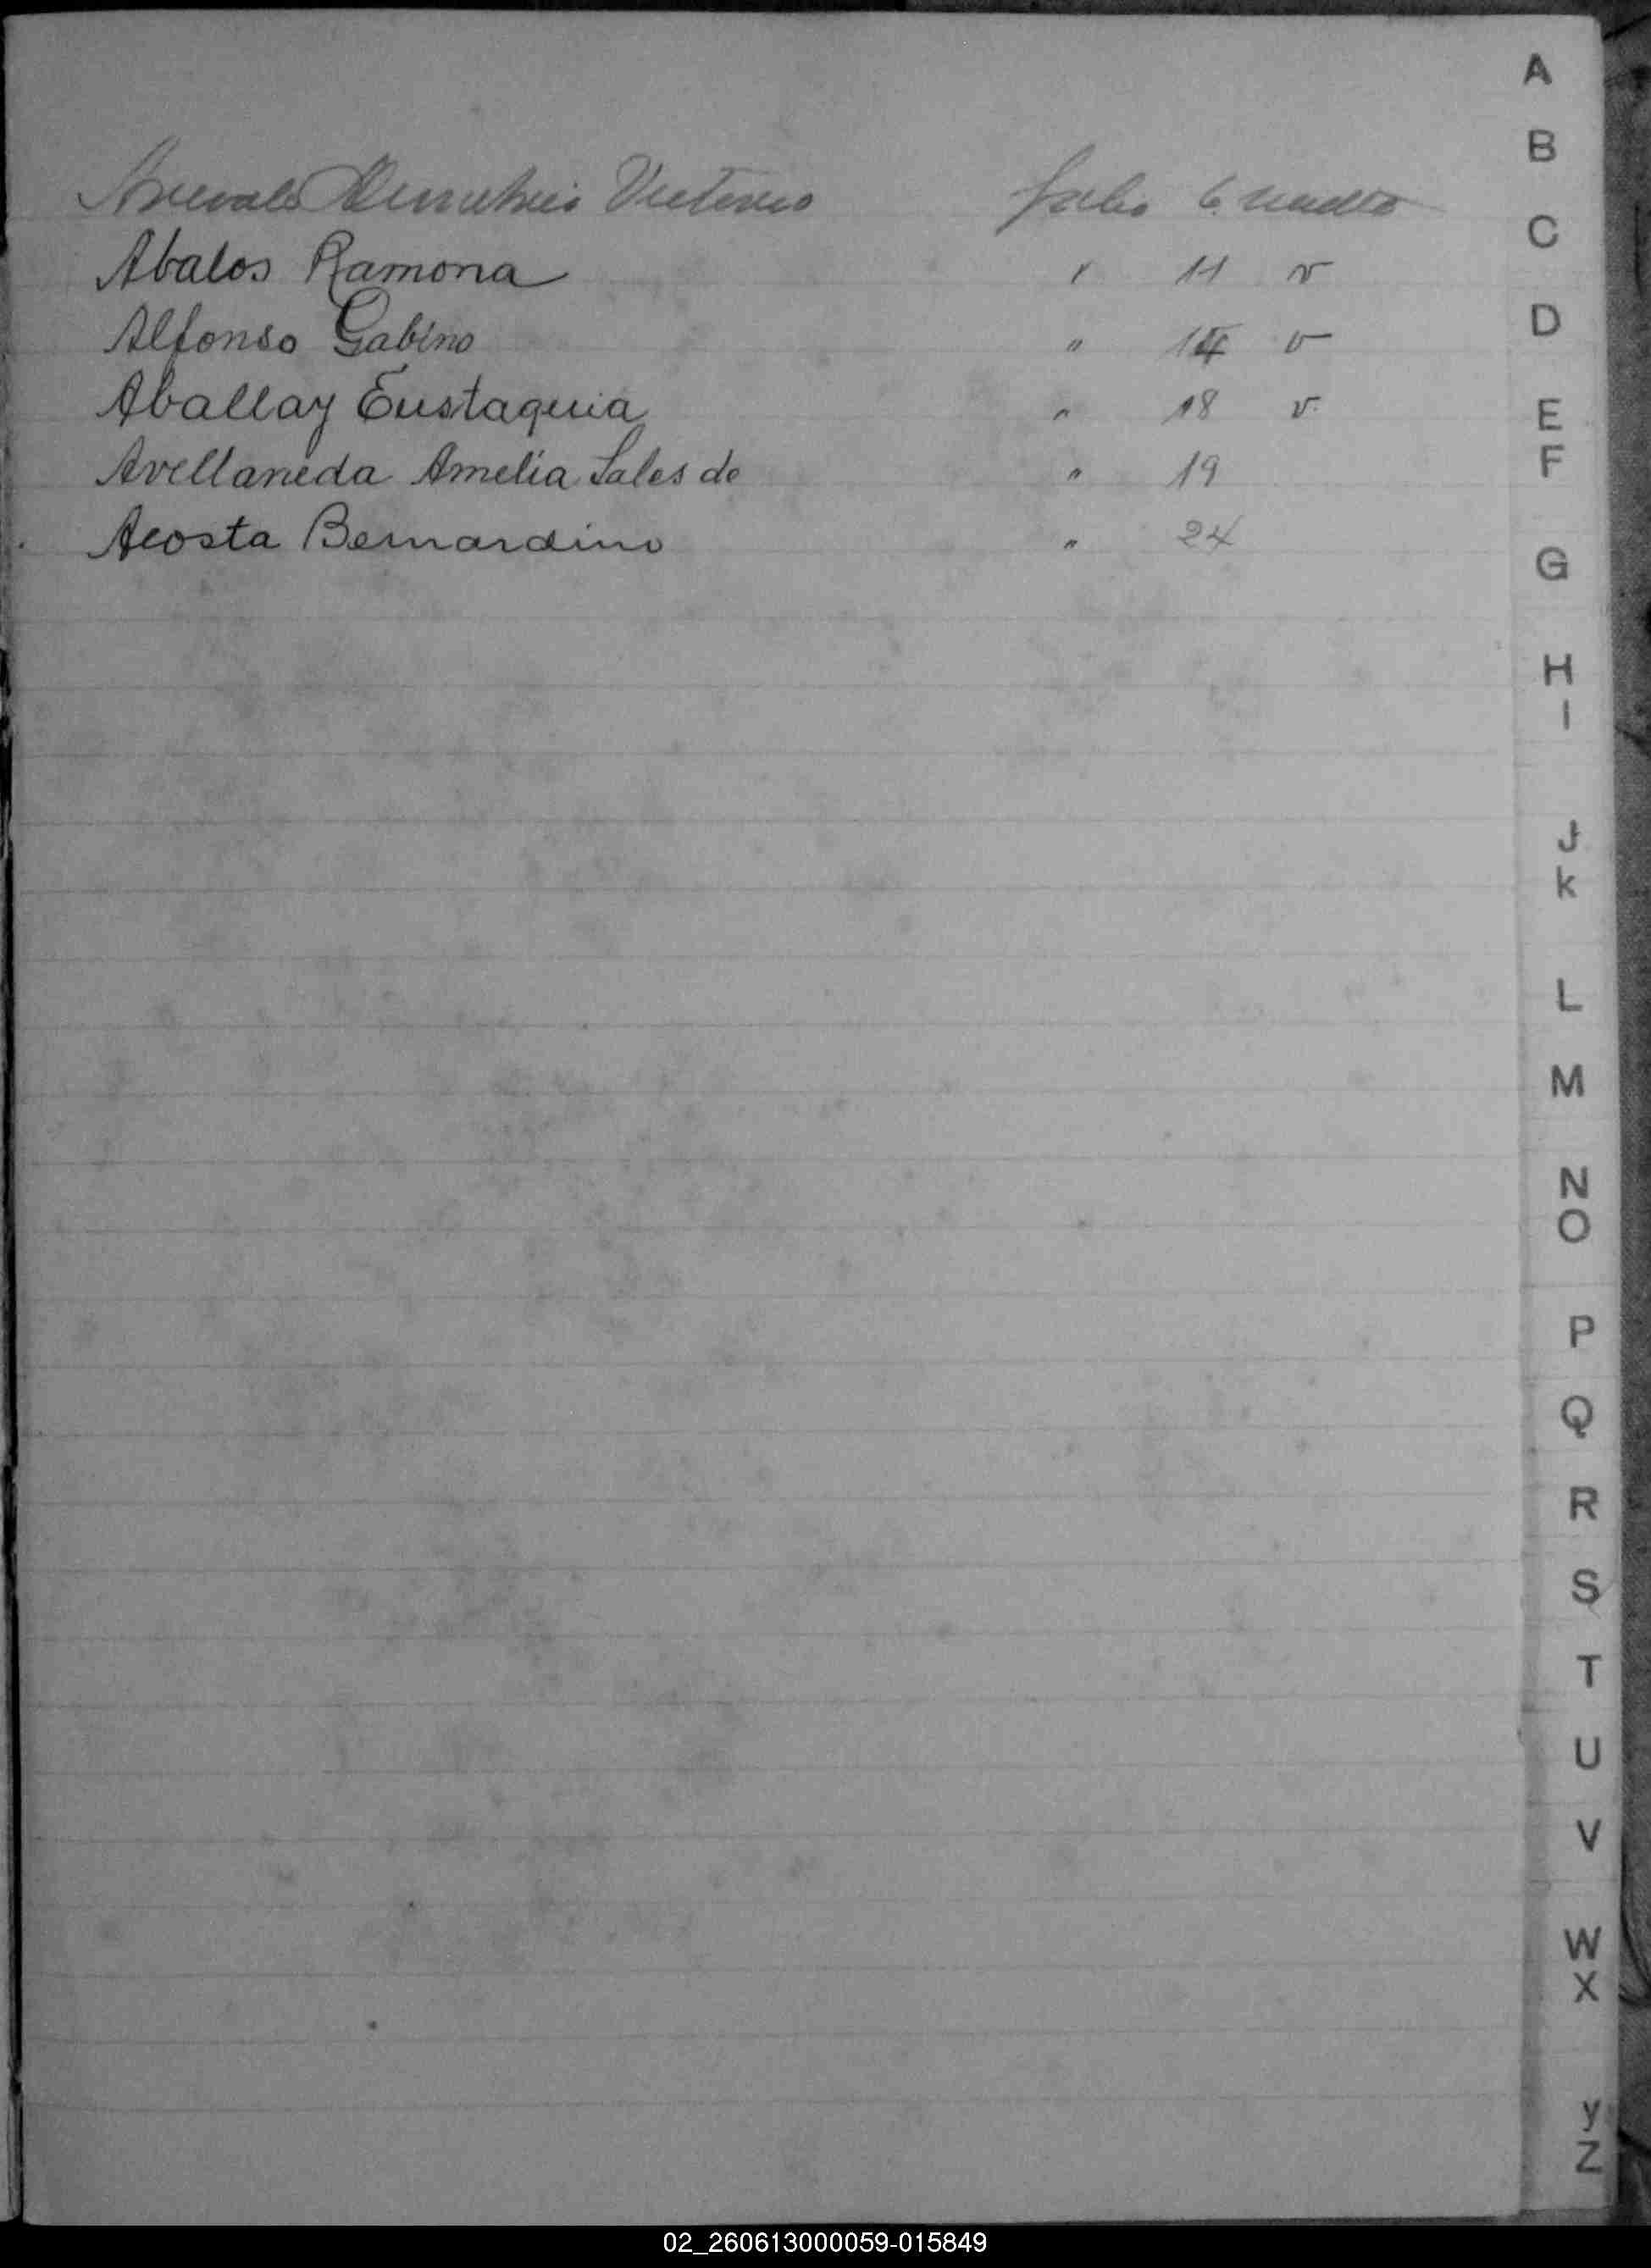 Arevalo Demetrio Victorio folio 6 vuelta
Abalos Ramona " 11 v
Alfonso Gabino " 14 v
Aballay Eustaquia " 18 v.
Avellaneda Amelia Sales de " 19
Acosta Bernardino " 24
A
B
C
D
E
F
G
H
I
J
K
L
M
N
O
P
Q
R
S
T
U
V
W
X
y
Z
02_260613000059-015849